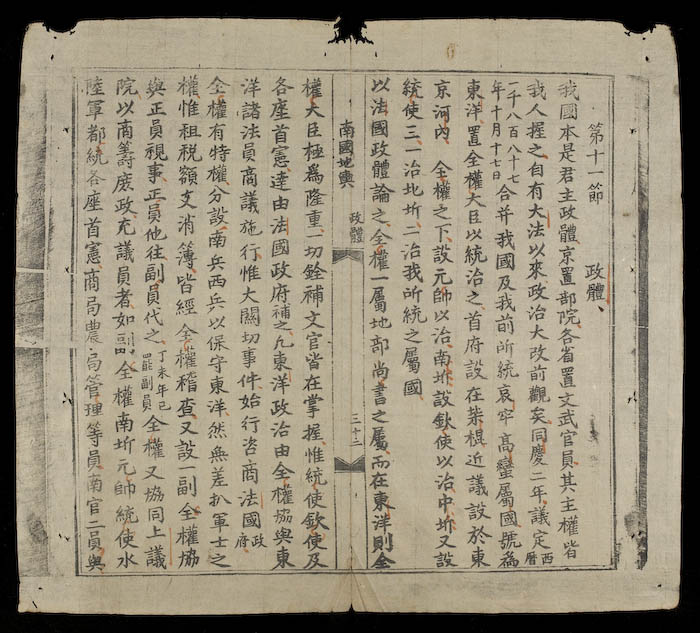 第十一節　政體、
我國本是君主政體京置部院各省置文武官員其主權皆
我人握之自有大法以來政治大改前觀矣同慶二年議定西曆
一千八百八十七年十月十七日合并我國及我前所統哀牢高蠻屬國號為
東洋置全權大臣以統治之首府設在柴棍近議設於東
京河內　全權之下設元帥以治南圻設欽使以治中圻又設
統使三一治北圻二治我所統之屬國
以法國政體論之全權一屬地部尚書之屬而在東洋則全
南國地輿　政體　三十二
權大臣極為隆重一切銓補文官皆在掌握惟統使欽使及
各座首憲達由法國政府補之凡東洋政治由全權協與東
洋諸法員商議施行惟大關切事件始行咨商法國政府
全權有特權分設南兵西兵以保守東洋然無差扒軍士之
權惟租稅額支消簿皆經全權稽查又設一副全權協
與正員視事正員他往副員代之丁未年已罷副員全權又協同上議
院以商籌庶政充議員者如副全權南圻元帥統使水
陸軍都統各座首憲商局農局管理等員南官二員與